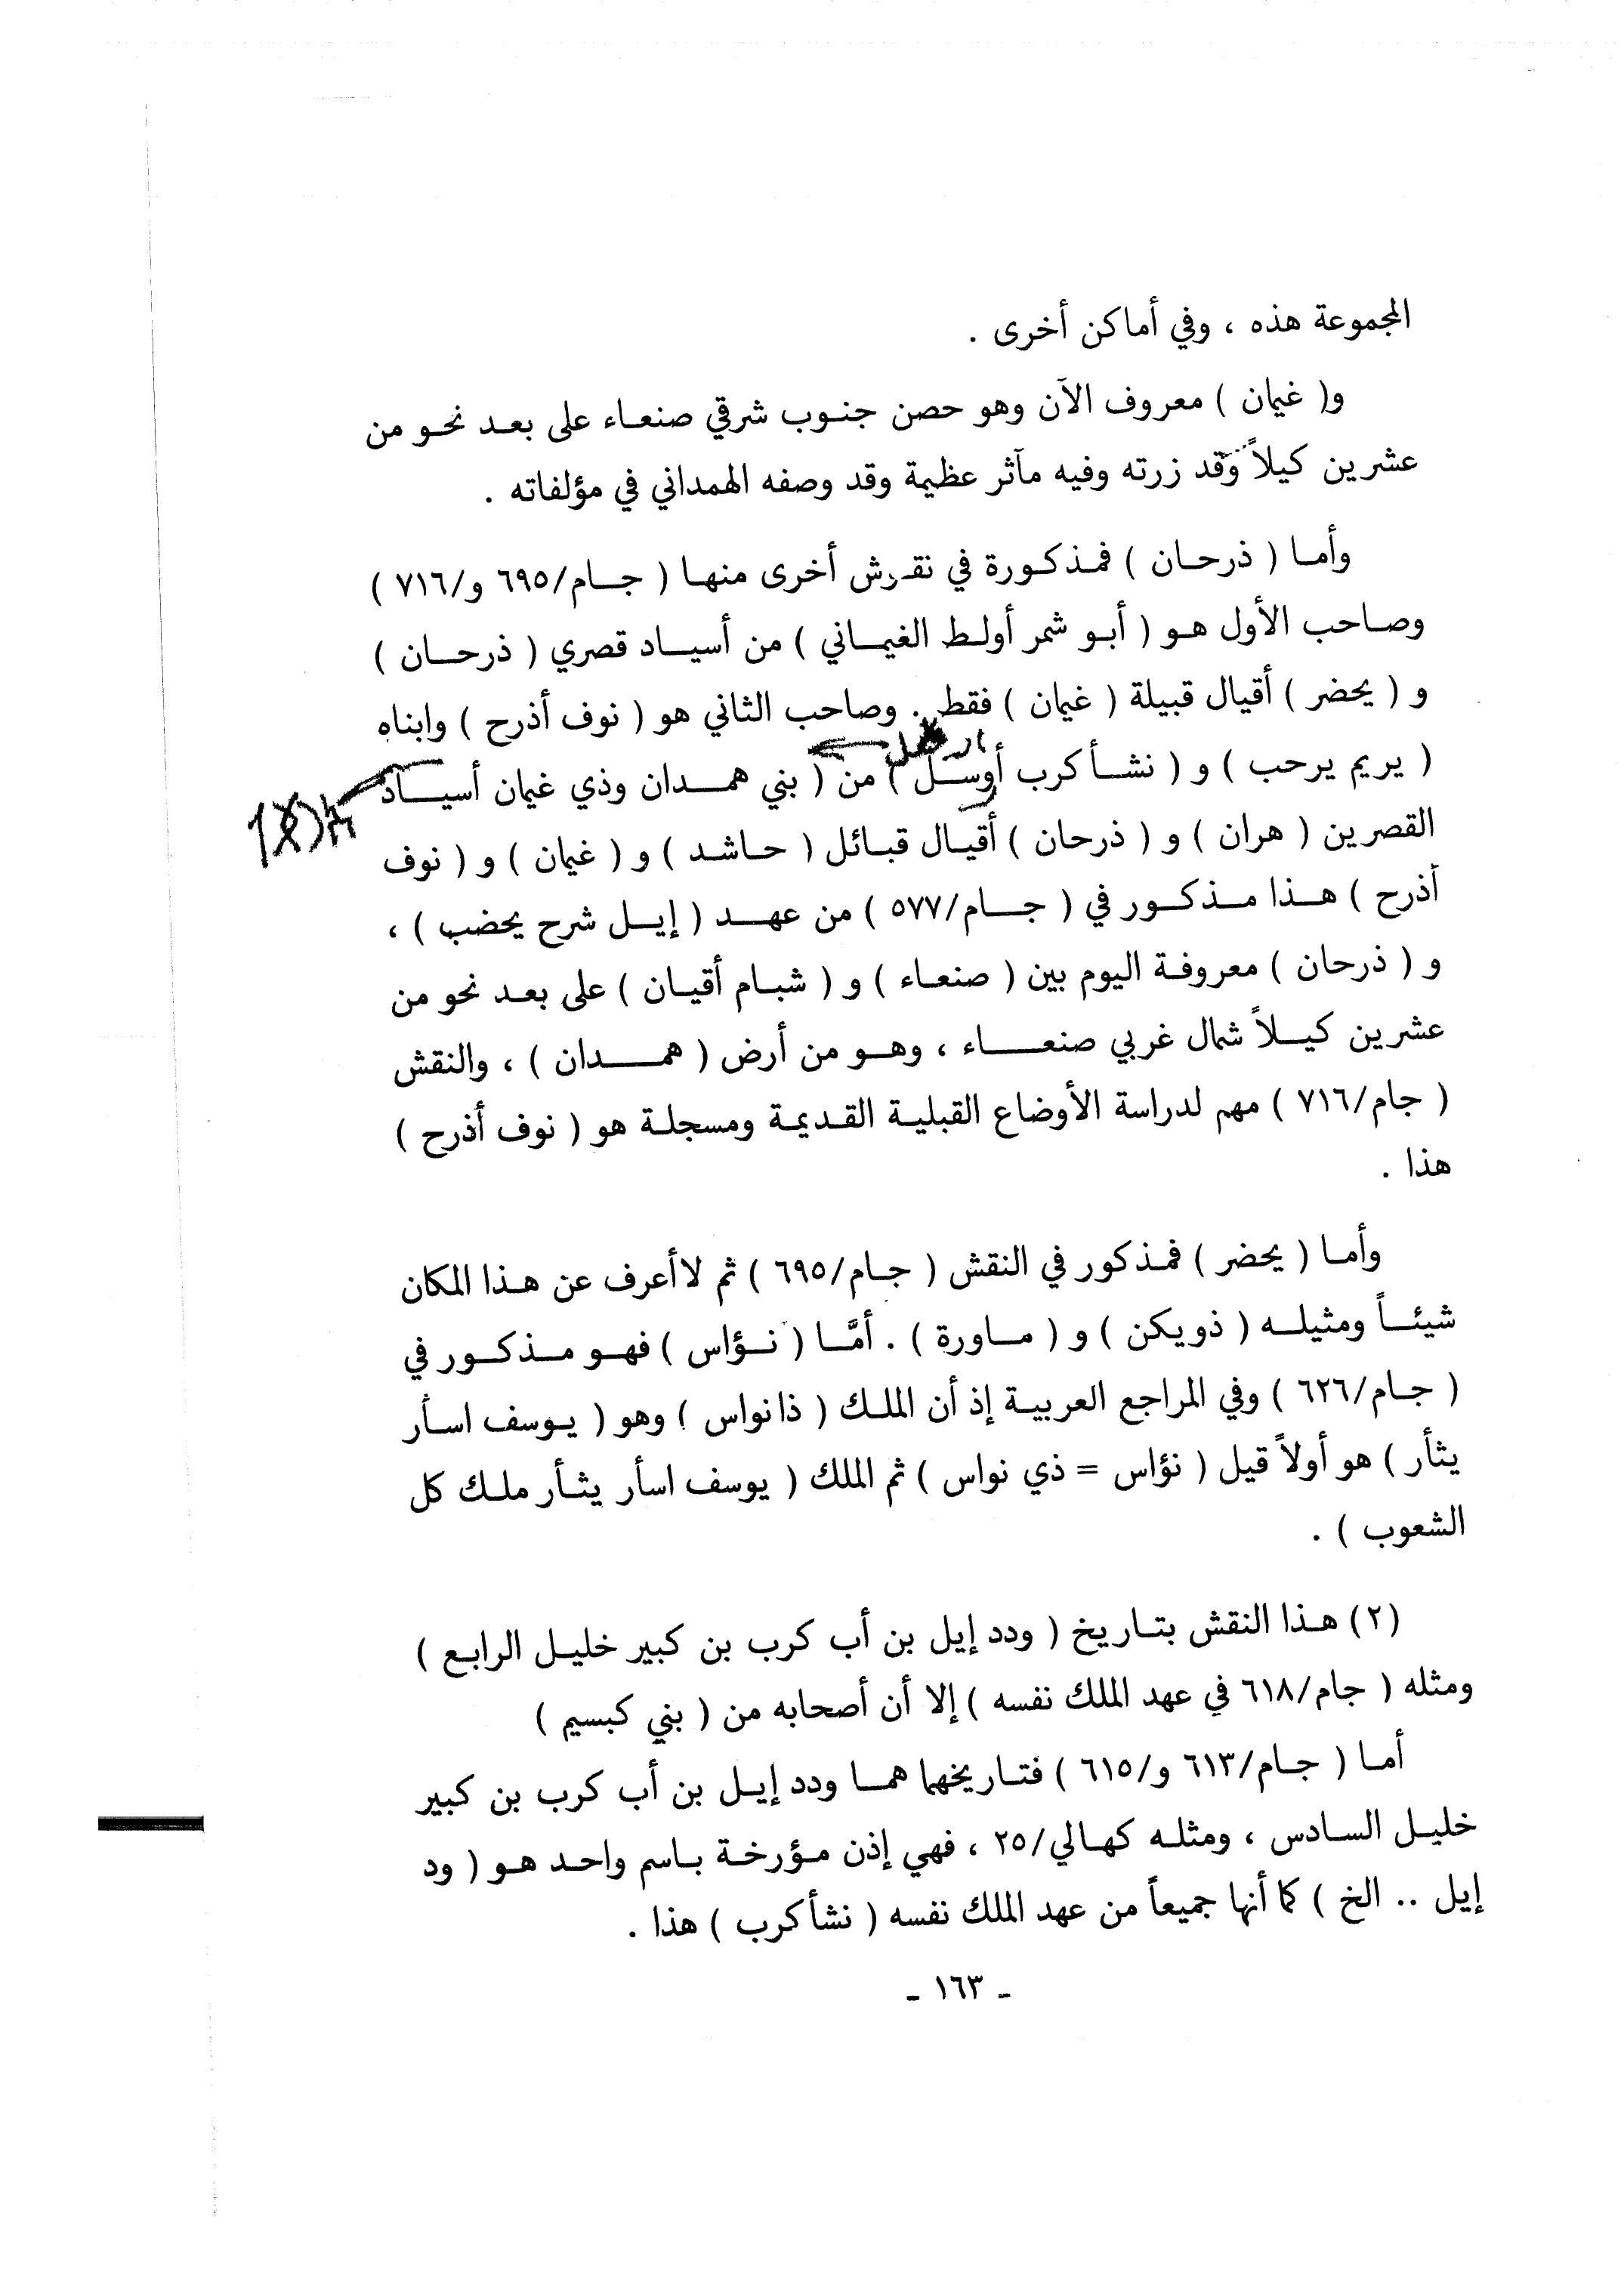 المجموعة هذه ، وفي أماكن أخرى .
و( غيمان ) معروف الآن وهو حصن جنوب شرقي صنعاء على بعد نحو من
عشرين كيلاً وقد زرته وفيه مآثر عظيمة وقد وصفه الهمداني في مؤلفاته .
وأما ( ذرحان ) فمذكورة في نقوش أخرى منها ( جام/٦٩٥ و/٧١٦ )
وصاحب الأول هو ( أبو شمر أولط الغيماني ) من أسياد قصري ( ذرحان )
و ( يحضر ) أقيال قبيلة ( غيمان ) فقط . وصاحب الثاني هو ( نوف أذرح ) وابناه
( يريم يرحب ) و ( نشأ كرب أوسل ) من ( بني همدان وذي غيمان أسياد
القصرين ( هران ) و ( ذرحان ) أقيال قبائل ( حاشد ) و ( غيمان ) و ( نوف
أذرح ) هذا مذكور في ( جام/٥٧٧ ) من عهد ( إيل شرح يحضب ) ،
و ( ذرحان ) معروفة اليوم بين ( صنعاء ) و ( شبام أقيان ) على بعد نحو من
عشرين كيلاً شمال غربي صنعاء ، وهو من أرض ( همدان ) ، والنقش
( جام/٧١٦ ) مهم لدراسة الأوضاع القبلية القديمة ومسجلة هو ( نوف أذرح )
هذا .
وأما ( يحضر ) فمذكور في النقش ( جام/٦٩٥ ) ثم لاأعرف عن هذا المكان
شيئاً ومثيله ( ذويكن ) و ( ماورة ) . أمَّا ( نؤاس ) فهو مذكور في
( جام/٦٢٦ ) وفي المراجع العربية إذ أن الملك ( ذا نواس ) وهو ( يوسف اسأر
يثأر ) هو أولاً قيل ( نؤاس = ذي نواس ) ثم الملك ( يوسف اسأر يثأر ملك كل
الشعوب ) .
(٢) هذا النقش بتاريخ ( ودد إيل بن أب كرب بن كبير خليل الرابع )
ومثله ( جام/٦١٨ في عهد الملك نفسه ) إلا أن أصحابه من ( بني كبسيم )
أما ( جام/٦١٣ و/٦١٥ ) فتاريخها هما ودد إيل بن أب كرب بن كبير
خليل السادس ، ومثله كهالي/٢٥ ، فهي إذن مؤرخة باسم واحد هو ( ود
إيل .. الخ ) كما أنها جميعاً من عهد الملك نفسه ( نشأ كرب ) هذا .
ـ ١٦٣ ـ